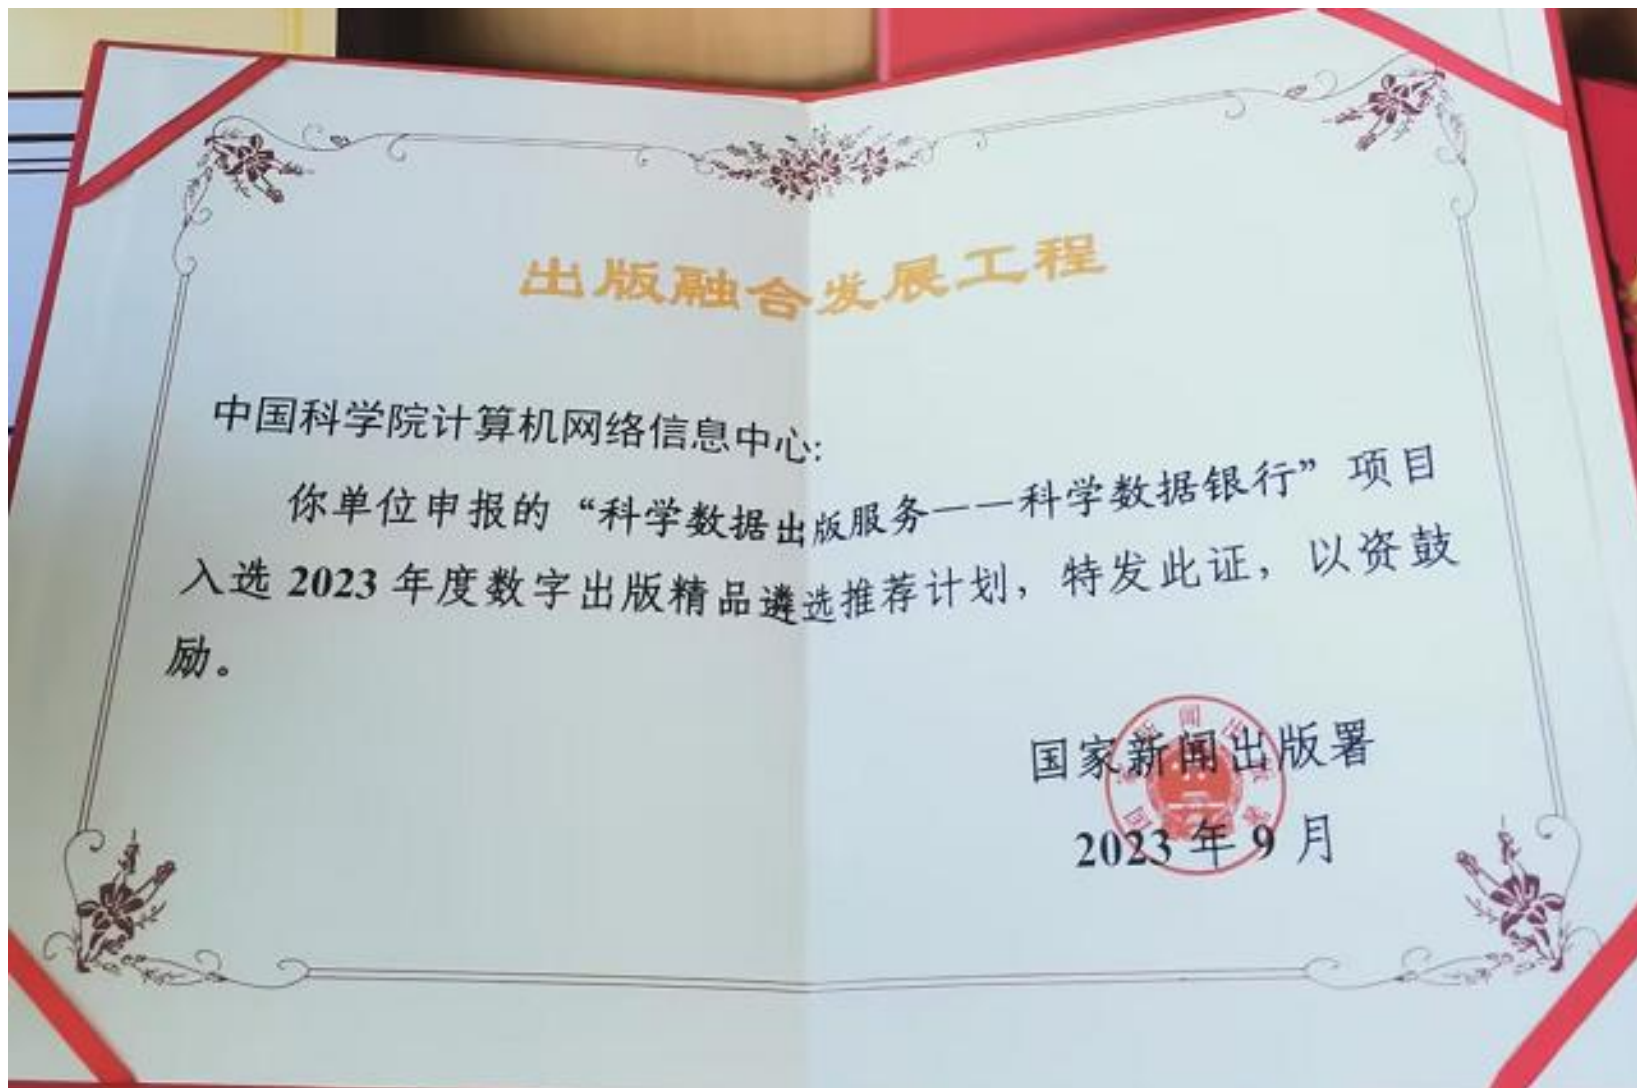 出版融合发展工程
中国科学院计算机网络信息中心:
你单位申报的“科学数据出版服务——科学数据银行”项目
入选 2023 年度数字出版精品遴选推荐计划，特发此证，以资鼓
励。
国家新闻出版署
2023 年 9 月